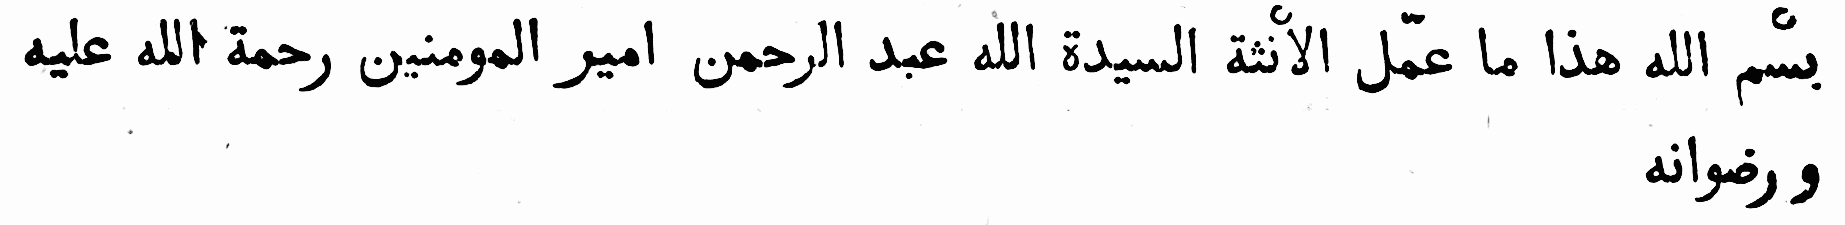 بسْم الله هذا ما عمّل الأنثة السيدة الله عبد الرحمن امير المومنين رحمة الله عليه
و رضوانه